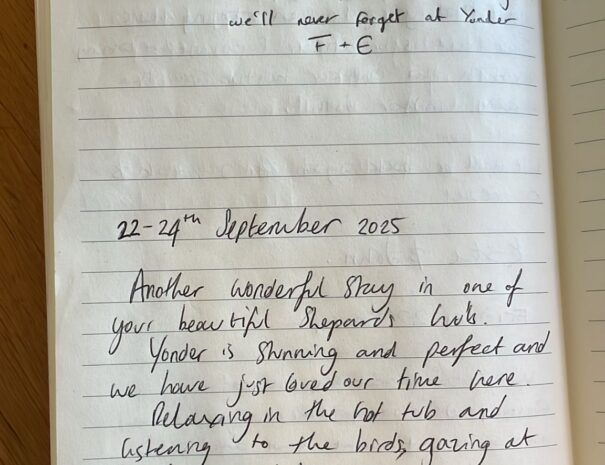 we'll never forget at Yonder
F + E
22-24th September 2025
Another wonderful stay in one of
your beautiful Shepards huts.
Yonder is stunning and perfect and
we have just loved our time here.
Relaxing in the hot tub and
listening to the birds, gazing at